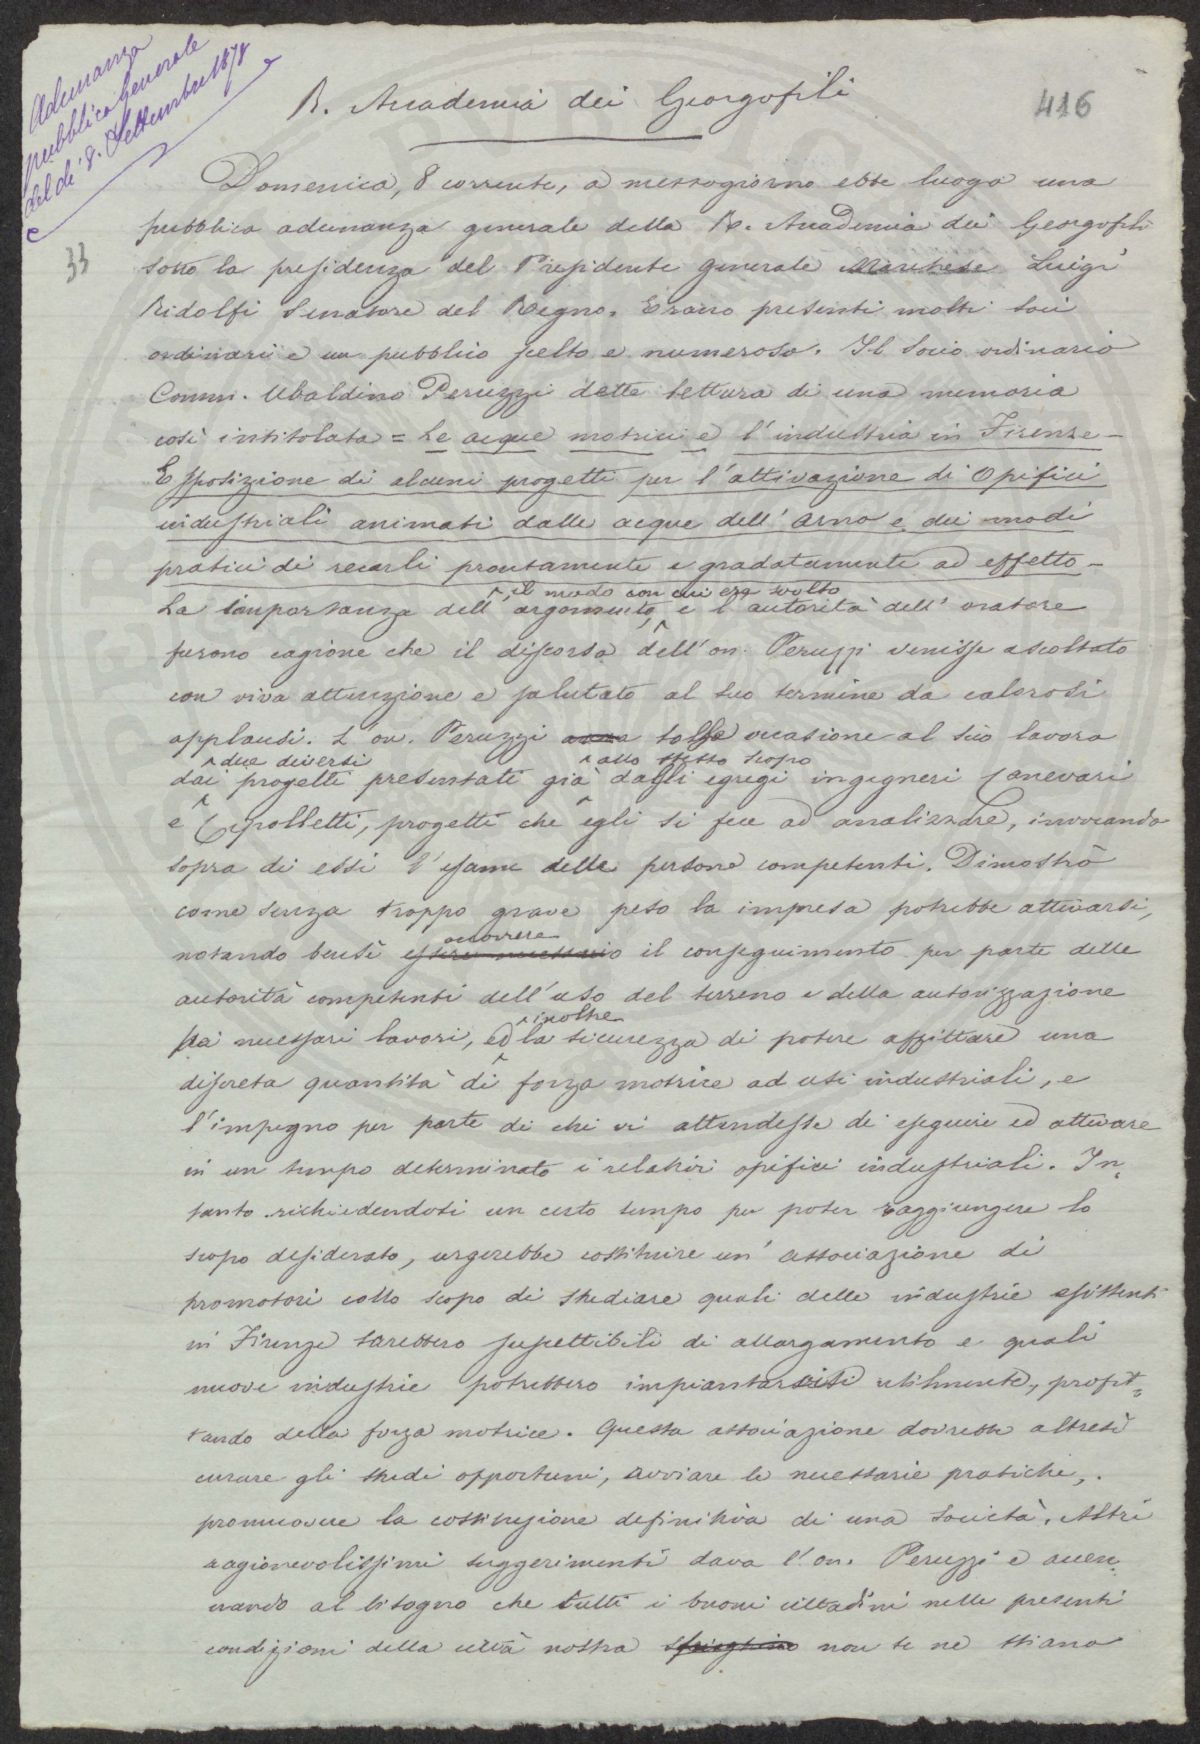 Adunanza
pubblica generale
del dì 8. Settembre 1878
R. Accademia dei Georgofili
416
33
Domenica, 8 corrente, a mezzogiorno ebbe luogo una
pubblica adunanza generale della R. Accademia dei Georgofili
sotto la presidenza del Presidente generale Marchese Luigi
Ridolfi Senatore del Regno. Erano presenti molti soci
ordinari e un pubblico scelto e numeroso. Il Socio ordinario
Comm. Ubaldino Peruzzi dette lettura di una memoria
così intitolata = Le acque motrici e l'industria in Firenze –
Esposizione di alcuni progetti per l'attivazione di Opifici
industriali animati dalle acque dell'Arno e dei modi
pratici di recarli prontamente e gradatamente ad effetto –
, il modo con cui era svolto
La importanza dell'argomento, e l'autorità dell'oratore
furono cagione che il discorso dell'on. Peruzzi venisse ascoltato
con viva attenzione e salutato al suo termine da calorosi
applausi. L'on. Peruzzi tolse occasione al suo lavoro
due diversi allo stesso scopo
dai progetti presentati già dagli egregi ingegneri Canevari
e Cepolletti, progetti che egli si fece ad analizzare, invocando
sopra di essi l'esame delle persone competenti. Dimostrò
come senza troppo grave peso la impresa potrebbe attivarsi,
occorrere
notando bensì essere necessario il conseguimento per parte delle
autorità competenti dell'uso del terreno e della autorizzazione
inoltre
pei necessari lavori, ed la sicurezza di potere affittare una
discreta quantità di forza motrice ad usi industriali, e
l'impegno per parte di chi vi attendesse di eseguire ed attivare
in un tempo determinato i relativi opifici industriali. In-
tanto richiedendosi un certo tempo per poter raggiungere lo
scopo desiderato, urgerebbe costituire un'associazione di
promotori collo scopo di studiare quali delle industrie esistenti
in Firenze sarebbero suscettibili di allargamento e quali
nuove industrie potrebbero impiantarsi utilmente, profit-
tando della forza motrice. Questa associazione dovrebbe altresì
curare gli studi opportuni, avviare le necessarie pratiche,
promuovere la costituzione definitiva di una Società. Altri
ragionevolissimi suggerimenti dava l'on. Peruzzi e accen-
nando al bisogno che tutti i buoni cittadini nelle presenti
condizioni della città nostra non se ne stiano